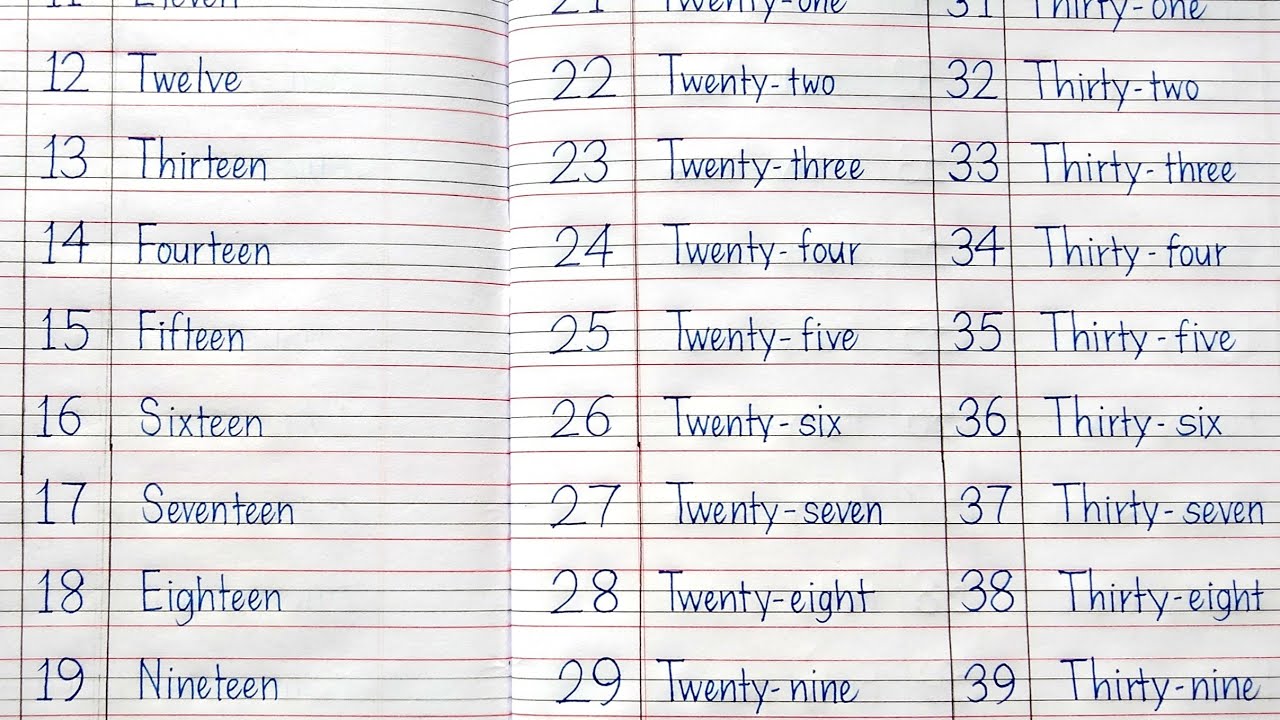 11 Eleven 21 Twenty-one 31 Thirty-one
12 Twelve 22 Twenty-two 32 Thirty-two
13 Thirteen 23 Twenty-three 33 Thirty-three
14 Fourteen 24 Twenty-four 34 Thirty-four
15 Fifteen 25 Twenty-five 35 Thirty-five
16 Sixteen 26 Twenty-six 36 Thirty-six
17 Seventeen 27 Twenty-seven 37 Thirty-seven
18 Eighteen 28 Twenty-eight 38 Thirty-eight
19 Nineteen 29 Twenty-nine 39 Thirty-nine